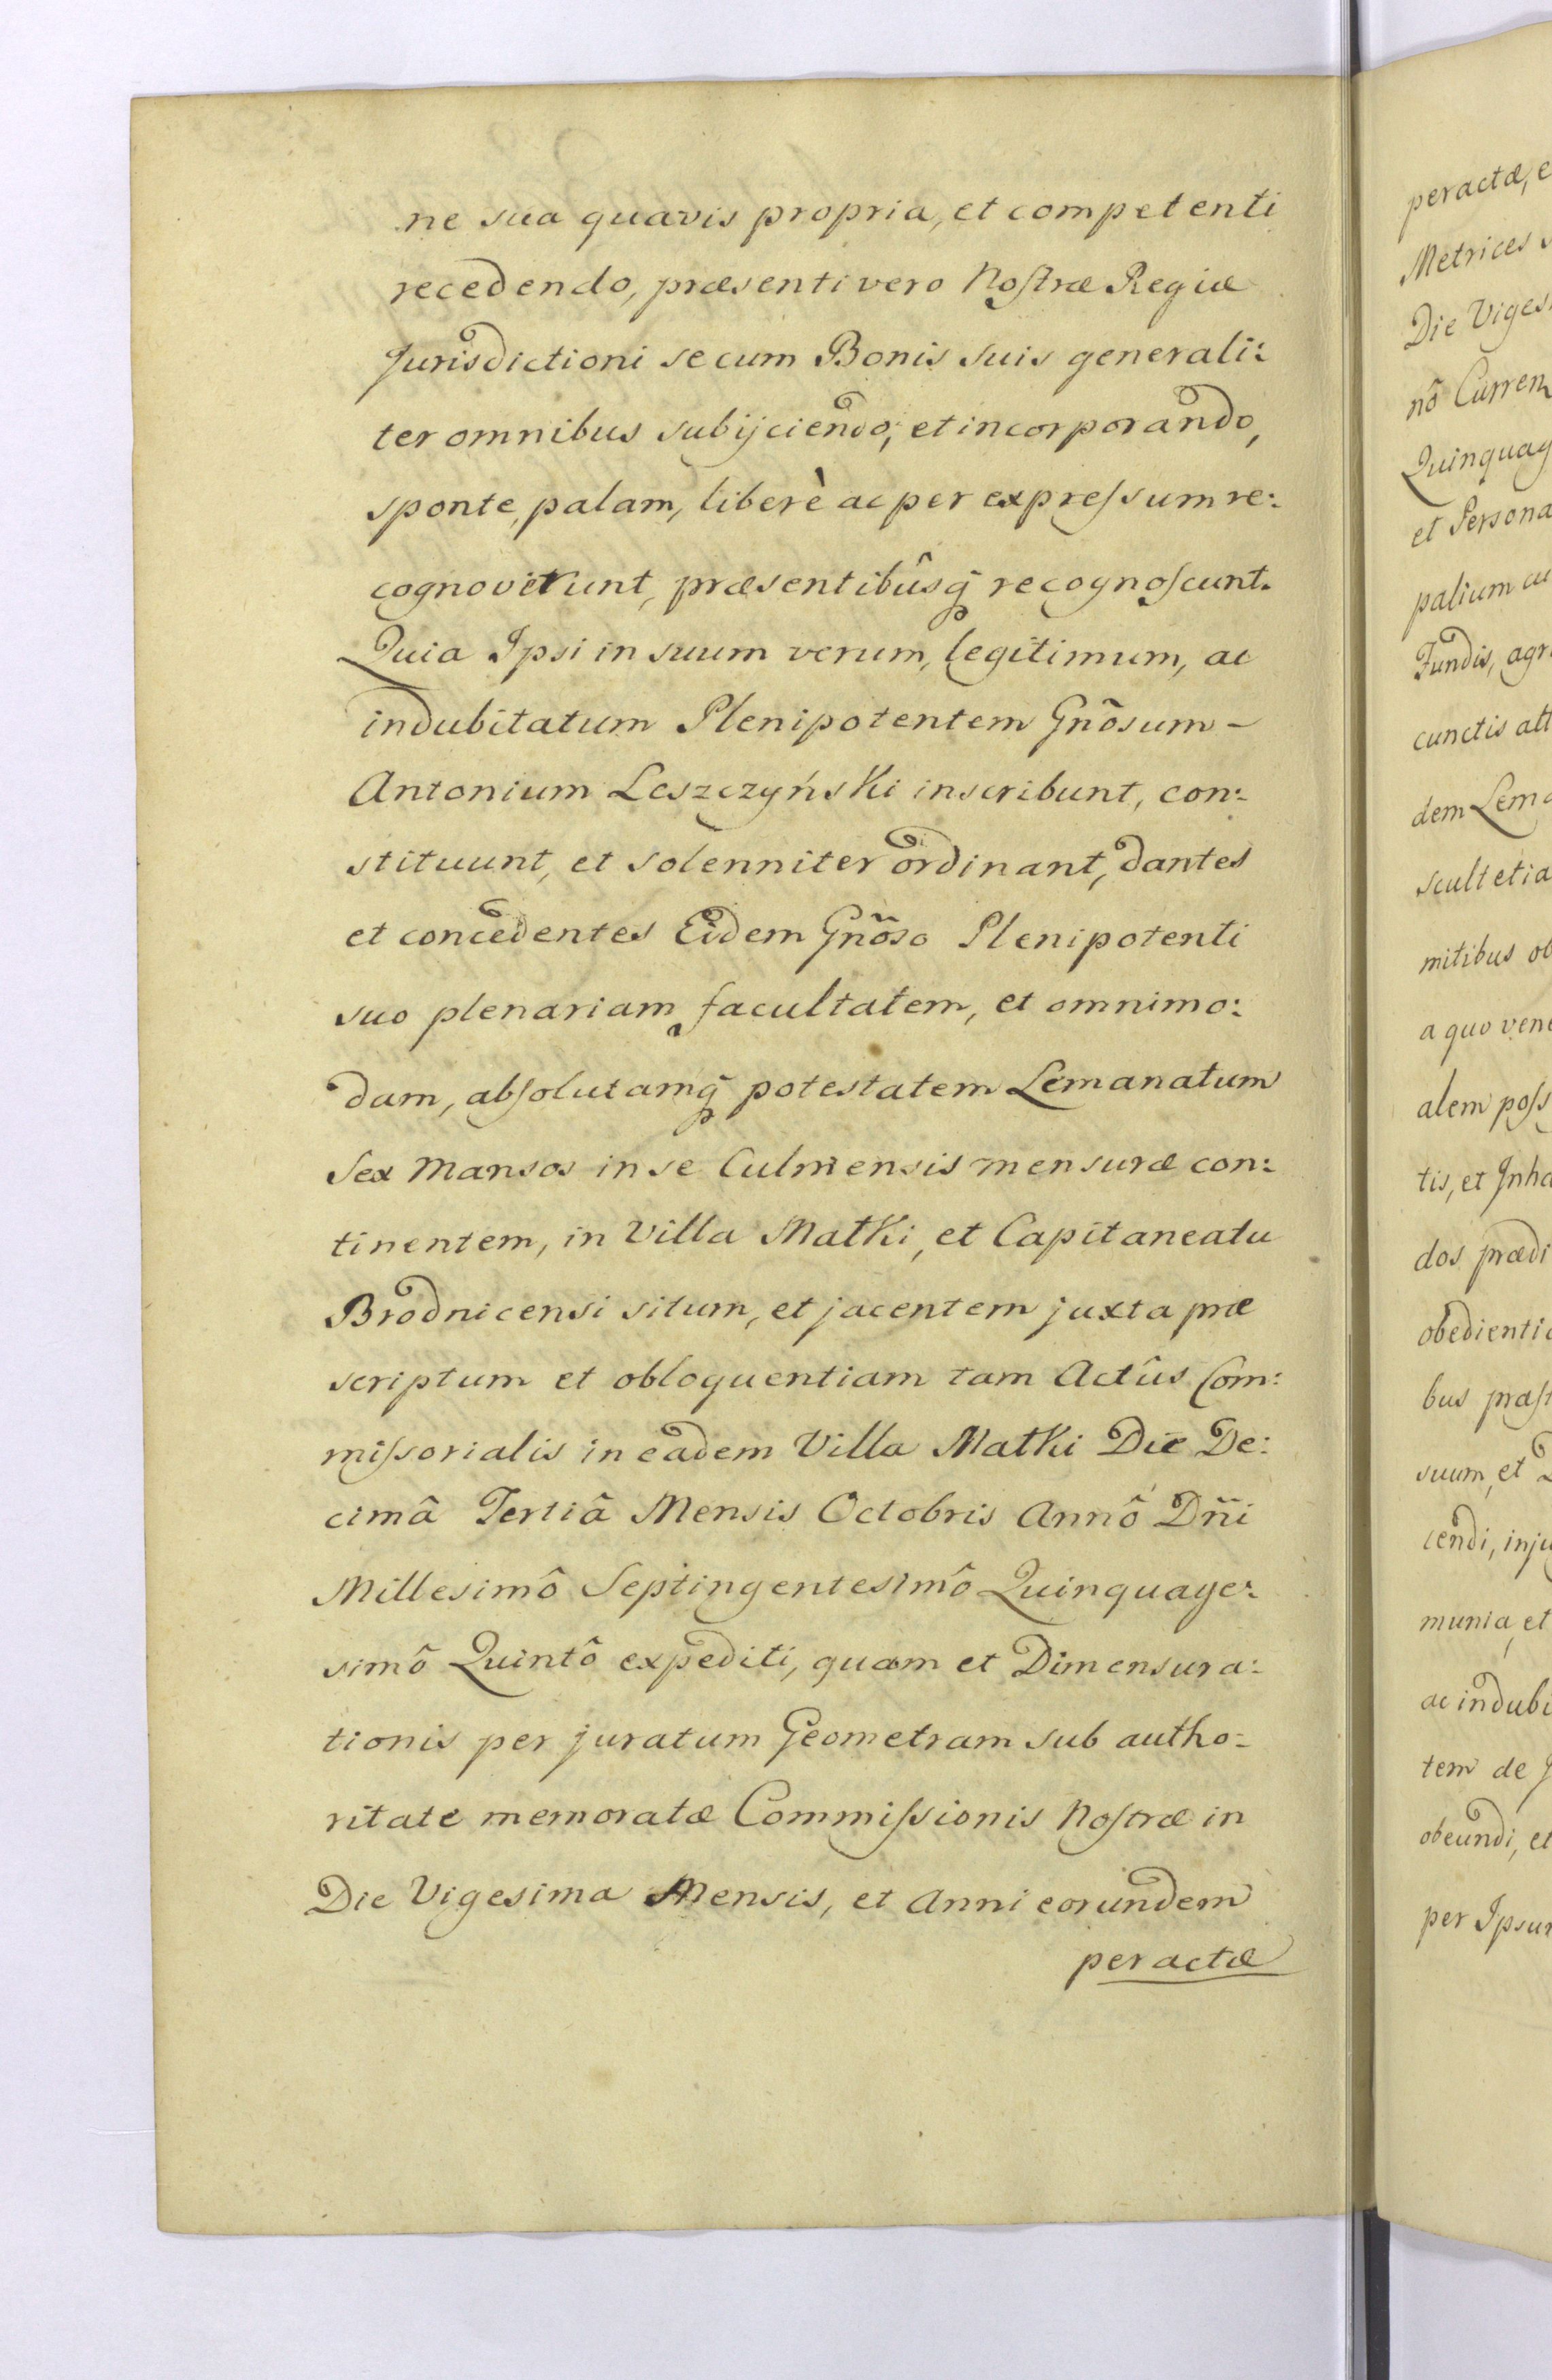 ne sua quavis propria, et competenti
recedendo, præsenti vero Noſtræ Regiæ
Jurisdictioni se cum Bonis suis generali:
ter omnibus subijciendo, et incorporando,
sponte, palam, liberè ac per expreſsum re:
cognoverunt, præsentibûsq̃ recognoſcunt.
Quia Ipsi in suum verum, legitimum, ac
indubitatum Plenipotentem Gnõsum -
Antonium Leszczyński inscribunt, con:
stituunt, et solenniter ordinant, dantes
et concedentes Eidem Gnõso Plenipotenti
suo plenariam facultatem, et omnimo:
dam, abſolutamq̃ potestatem Lemanatum
Sex Mansos in se Culmensis mensuræ con:
tinentem, in Villa Matki, et Capitaneatu
Brodnicensi situm, et jacentem juxta præ
scriptum et obloquentiam tam Actûs Com:
miſsorialis in eadem Villa Matki Die De:
cimâ Tertiâ Mensis Octobris Annô Dñi
Millesimô Septingentesimô Quinquage:
simô Quintô expediti, quam et Dimensura:
tionis per juratum Geometram sub autho:
ritate memoratæ Commiſsionis Noſtræ in
Die Vigesima Mensis, et Anni eorundem
peractæ
peractæ, e
Metrices
Die Viges
nô Curren
Quinquag
et Persona
palium cu
Fundis, agr
cunctis att
dem Lema
scultetia
mitibus ob
a quo vene
alem poſs
tis, et Inha
dos prædi
obedientia
bus præſt
suum, et
cendi, inju
munia, et
ac indubi
tem de J
obeundi, et
per Ipsum